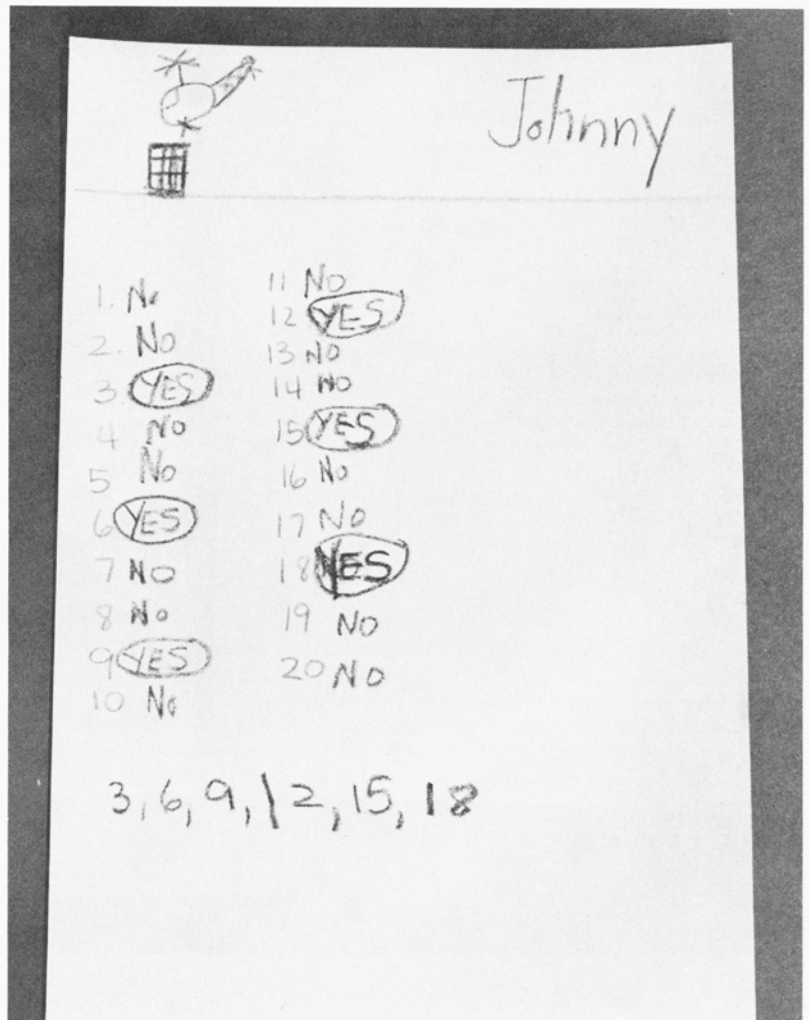 Johnny
1. No
2. No
3 YES
4 No
5 No
6 YES
7 NO
8 No
9 YES
10 No
11 No
12 YES
13 NO
14 NO
15 YES
16 No
17 NO
18 YES
19 NO
20 NO
3, 6, 9, 12, 15, 18